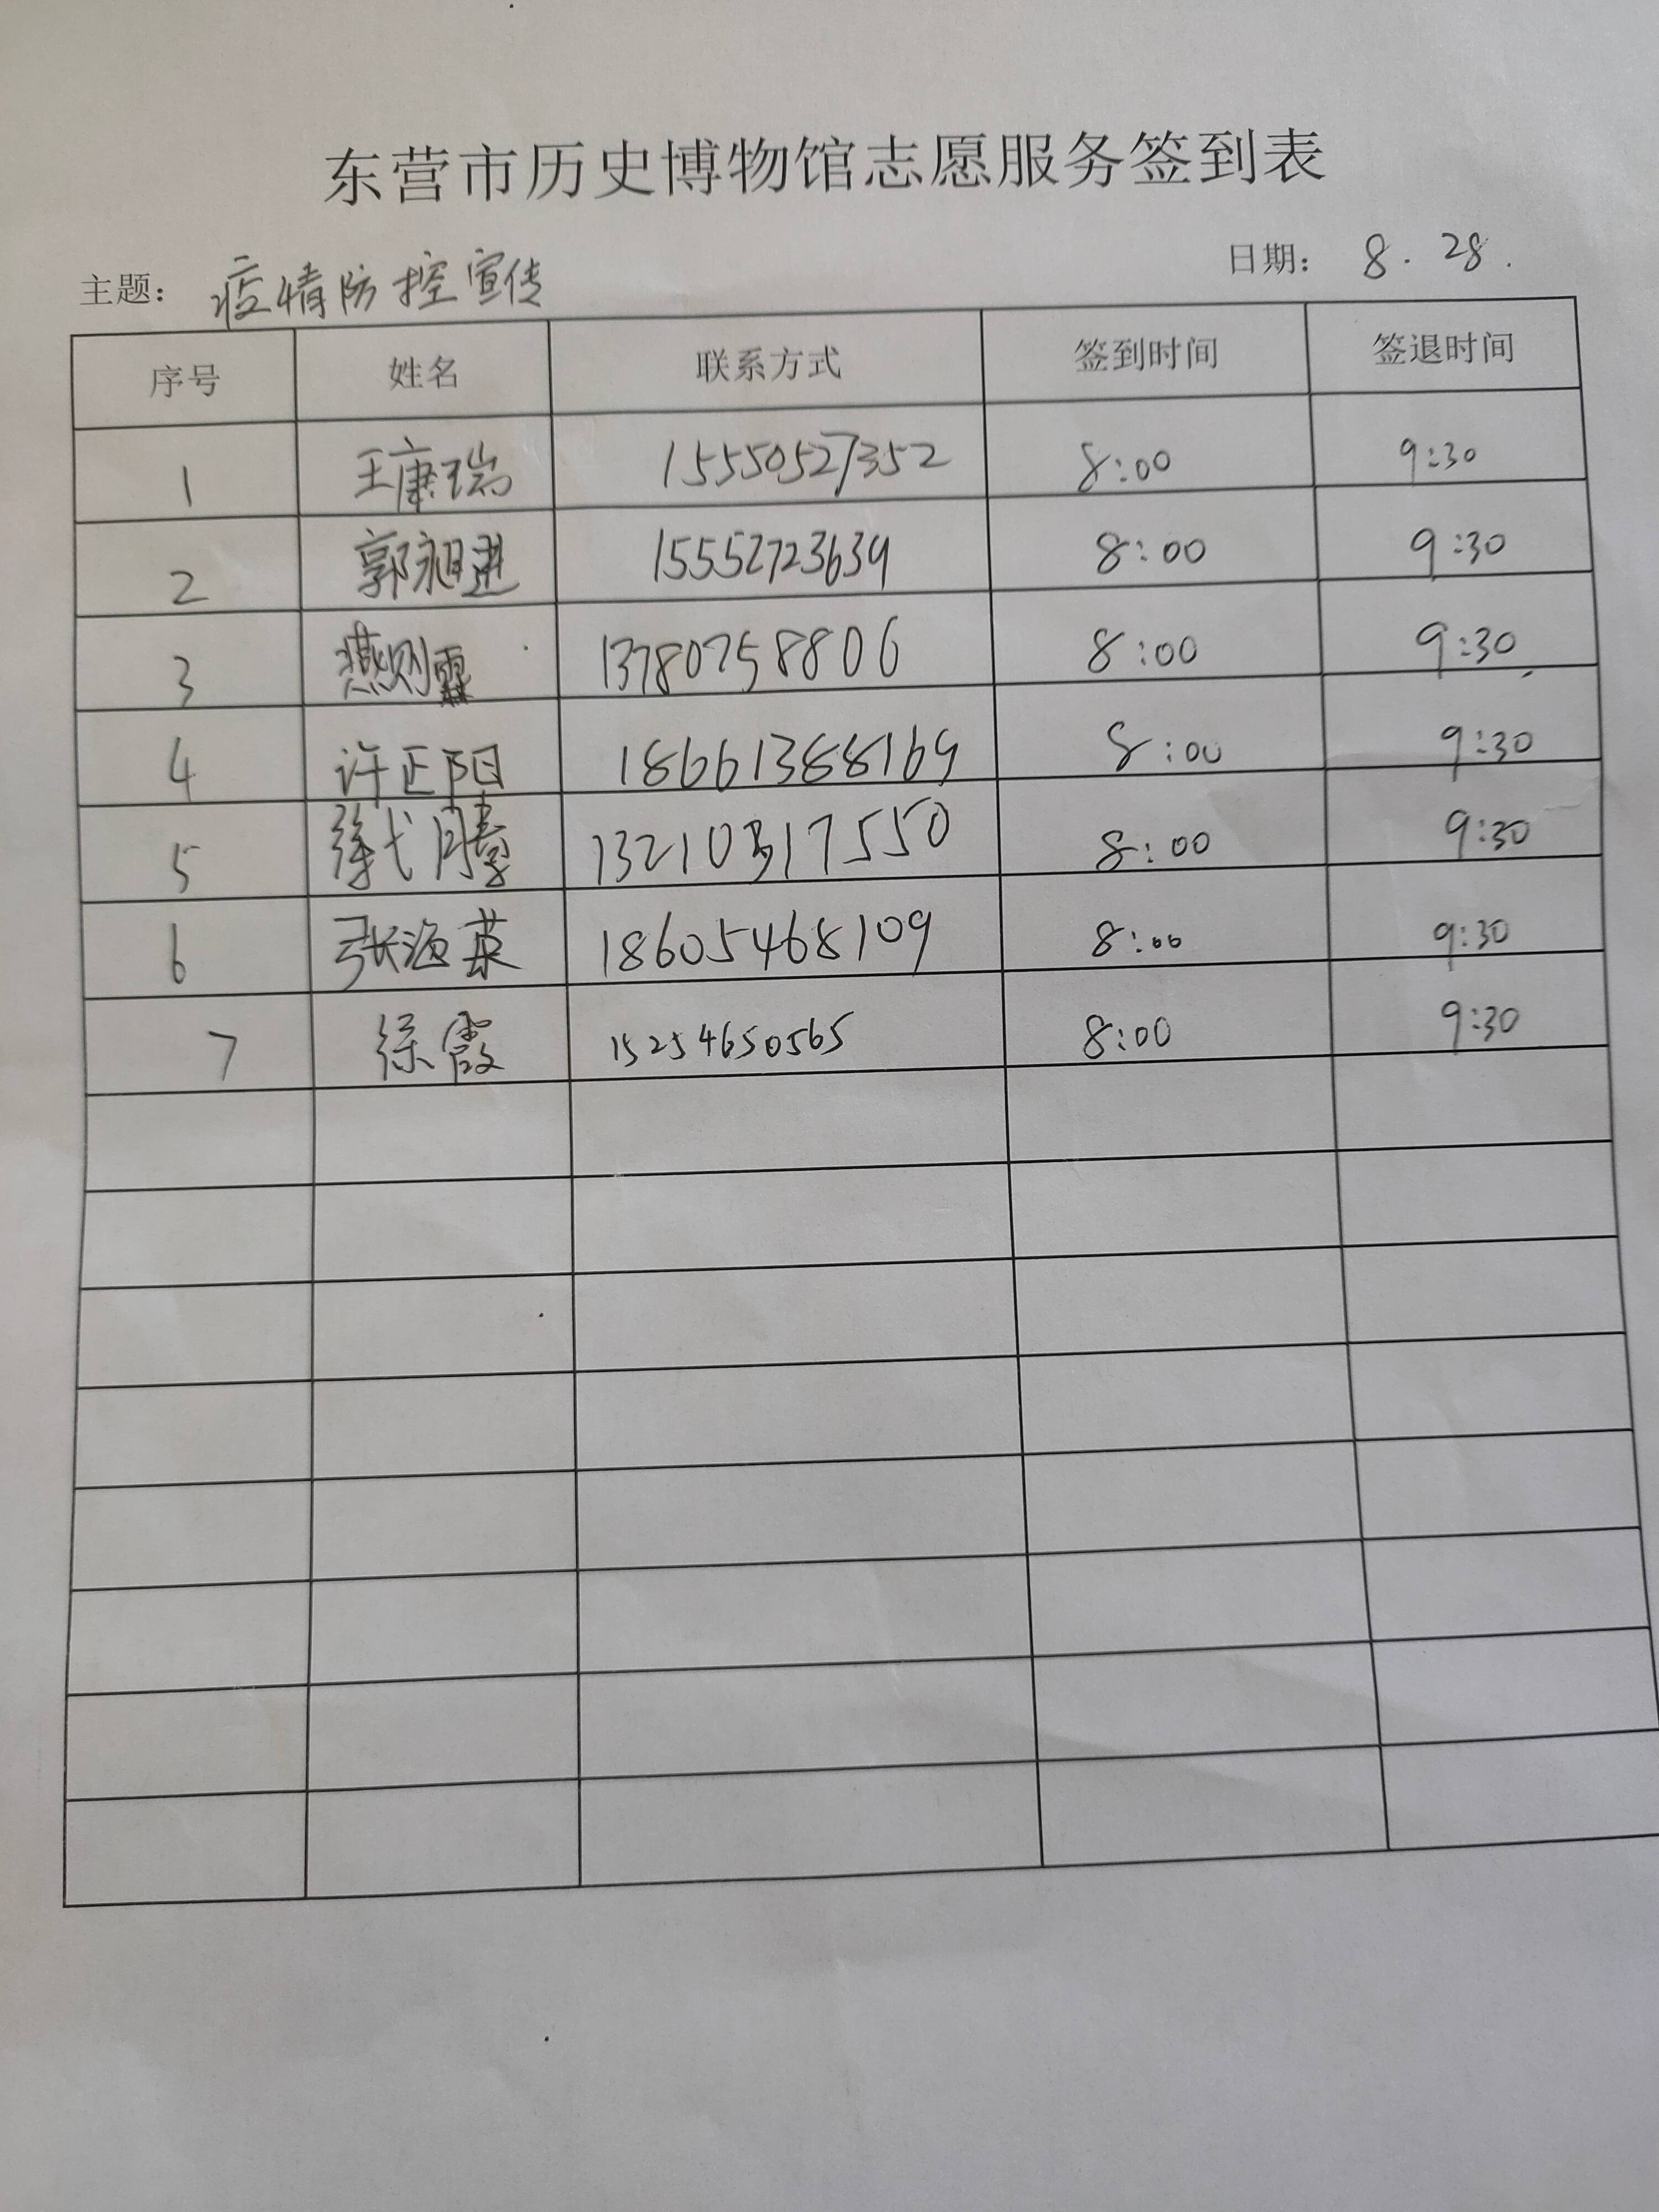 东营市历史博物馆志愿服务签到表
主题： 疫情防控宣传 日期： 8.28.
序号 姓名 联系方式 签到时间 签退时间
1 王康瑞 15550527352 8:00 9:30
2 郭昶进 15552723639 8:00 9:30
3 燕则霖 13780758806 8:00 9:30
4 许正阳 18661388169 8:00 9:30
5 13210317550 8:00 9:30
6 张海英 18605468109 8:00 9:30
7 徐霞 15254650565 8:00 9:30